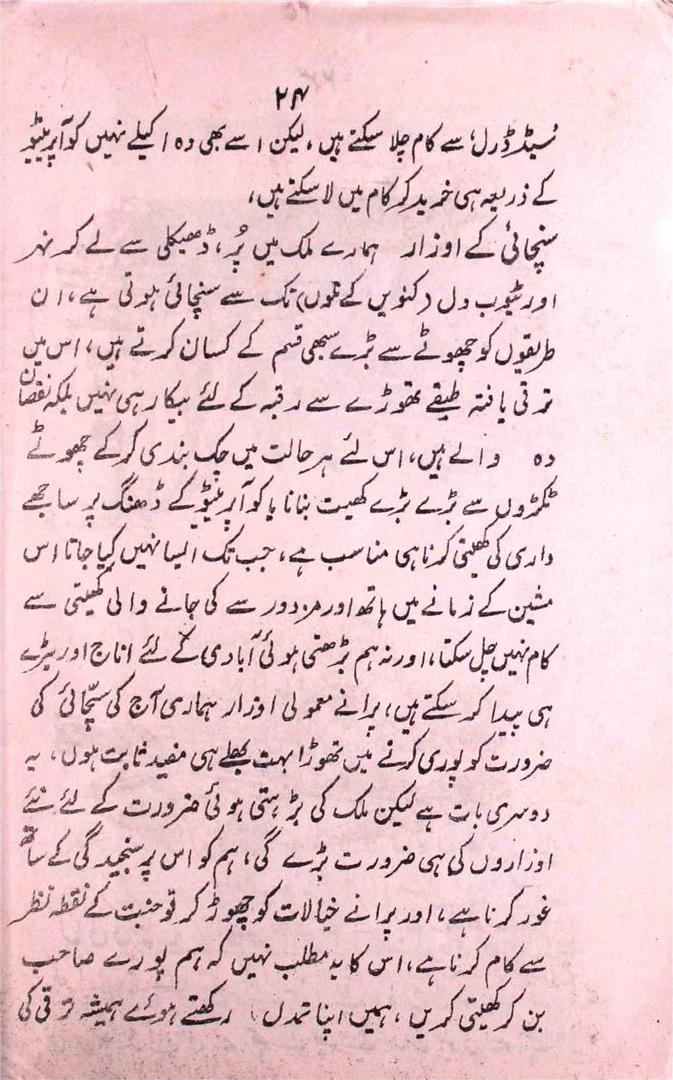 ۲۴
سیڈڈرل، سے کام چلا سکتے ہیں، لیکن اسے بھی دہ اکیلے نہیں کوآپریٹیو
کے ذریعہ ہی خرید کر کام میں لا سکتے ہیں،
سنچائی کے اوزار ہمارے ملک میں پُر، ڈھیکلی سے لے کر نہر
اور ٹیوب ول (کنویں کے نلوں) تک سے سنچائی ہوتی ہے، ان
طریقوں کو چھوٹے سے بڑے سبھی قسم کے کسان کرتے ہیں، اس میں
ترقی یافتہ طبقے تھوڑے سے رقبہ کے لئے بیکار ہی نہیں بلکہ نقصان
دہ والے ہیں، اس لئے ہر حالت میں چک بندی کر کے چھوٹے
ٹکڑوں سے بڑے بڑے کھیت بنانا یا کوآپریٹیو کے ڈھنگ پر ساجھے
داری کی کھیتی کرنا ہی مناسب ہے، جب تک ایسا نہیں کیا جاتا اس
مشین کے زمانے میں ہاتھ اور مزدور سے کی جانے والی کھیتی سے
کام نہیں چل سکتا، اور نہ ہم بڑھتی ہوئی آبادی کے لئے اناج اور بڑے
ہی پیدا کر سکتے ہیں، پرانے معمولی اوزار ہماری آج کی سچّائی کی
ضرورت کو پوری کرنے میں تھوڑا بہت بھلے ہی مفید ثابت ہوں، یہ
دوسری بات ہے لیکن ملک کی بڑہتی ہوئی ضرورت کے لئے نئے
اوزاروں کی ہی ضرورت بڑے گی، ہم کو اس پر سنجیدگی کے ساتھ
غور کرنا ہے، اور پرانے خیالات کو چھوڑ کر کے نقطہ نظر
سے کام کرنا ہے، اس کا یہ مطلب نہیں کہ ہم پورے صاحب
بن کر کھیتی کریں، ہمیں اپنا تمدن رکھتے ہوئے ہمیشہ ترقی کی